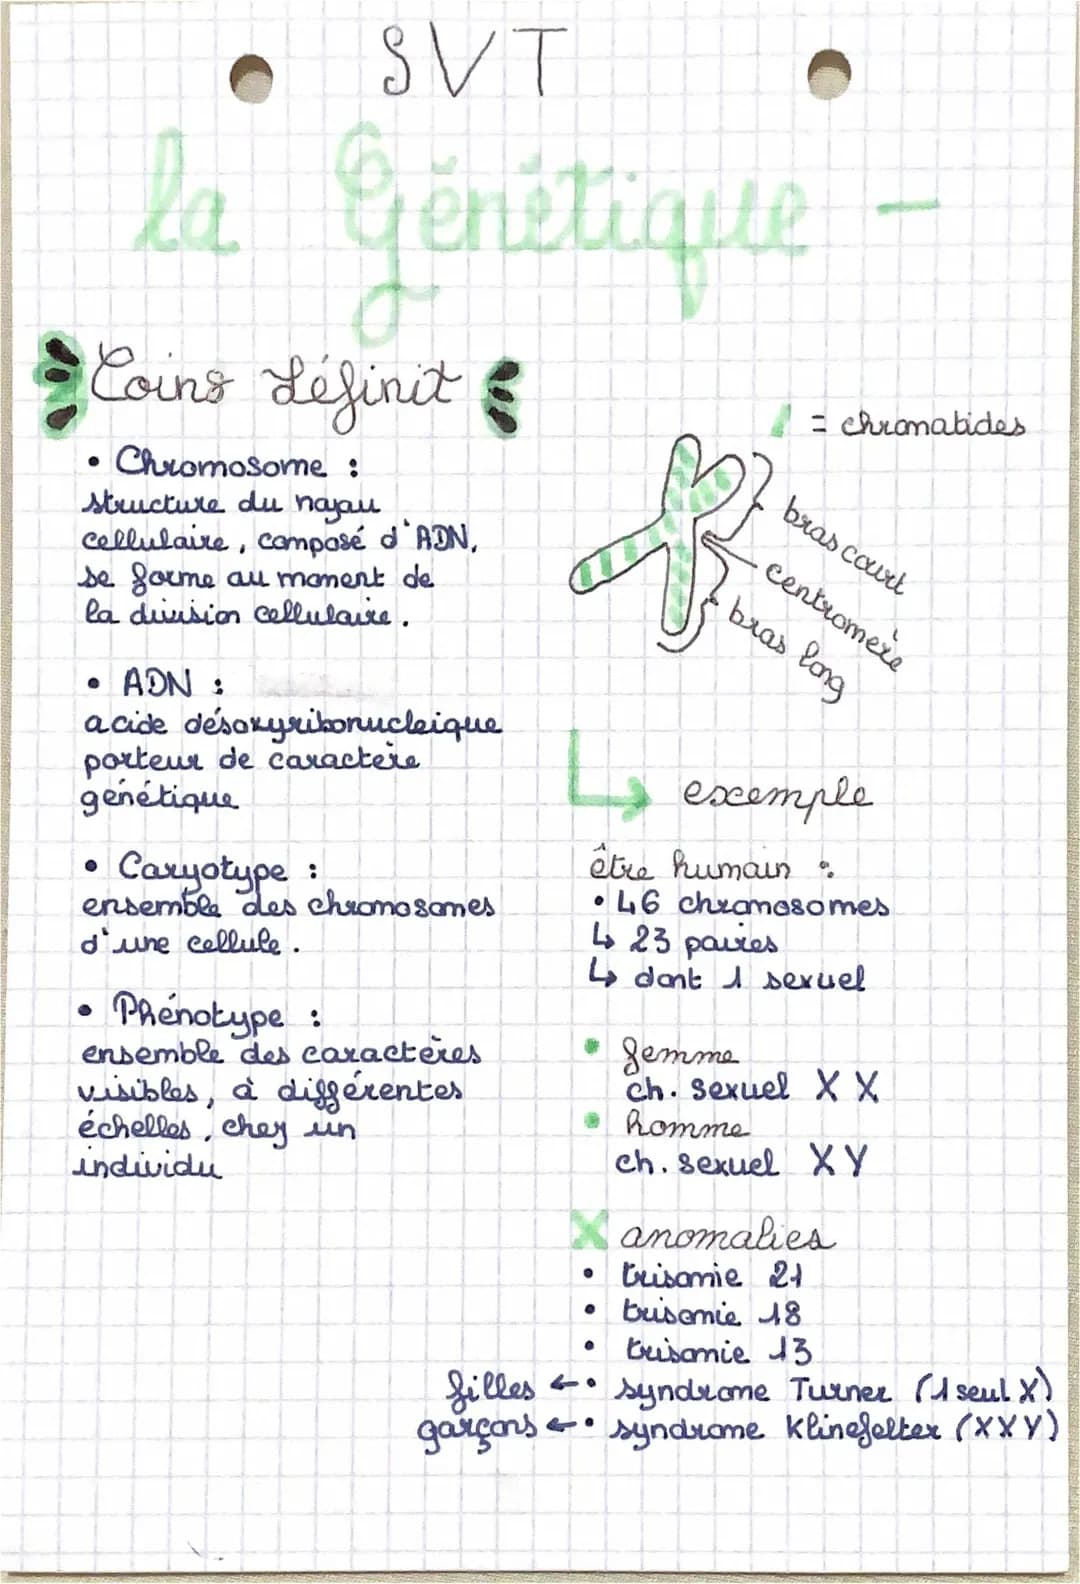 SVT
la Génétique -
Coins définit
• Chromosome :
structure du noyau
cellulaire, composé d'ADN,
se forme au moment de
la division cellulaire.
• ADN :
acide désoxyribonucleique
porteur de caractère
génétique
• Caryotype :
ensemble des chromosomes
d'une cellule.
• Phénotype :
ensemble des caractères
visibles, à différentes
échelles, chez un
individu
= chromatides
bras court
centromère
bras long
↳ exemple
être humain :
• 46 chromosomes
↳ 23 paires
↳ dont 1 sexuel
• femme
ch. sexuel X X
• homme
ch. sexuel X Y
X anomalies
• trisomie 21
• trisomie 18
• trisomie 13
filles ←• syndrome Turner (1 seul X)
garçons ←• syndrome Klinefelter (XXY)